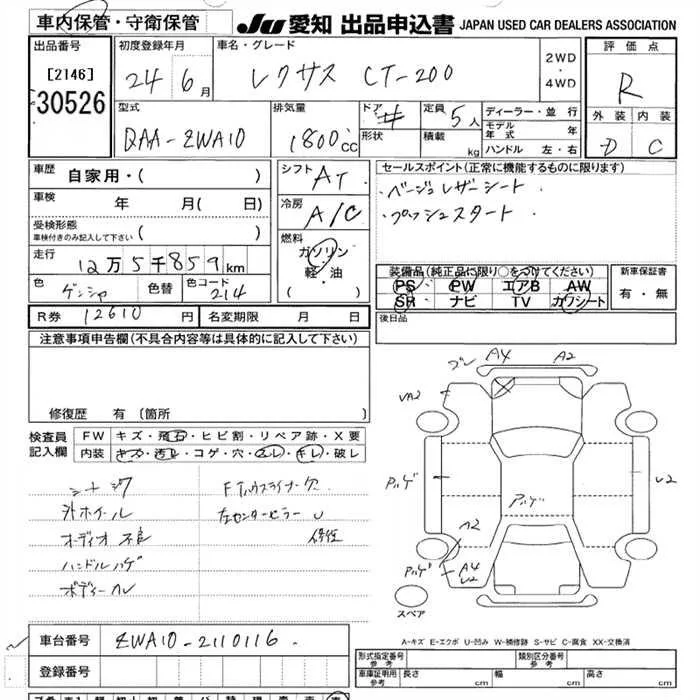 車内保管・守衛保管
JU 愛知 出品申込書 JAPAN USED CAR DEALERS ASSOCIATION
出品番号 初度登録年月 車名・グレード 評価点
[2146] 24 6月 レクサス CT-200 2WD・4WD R
30526
型式 排気量 ドア 定員 5人 ディーラー・並行 外装 内装
DAA-ZWA10 1800cc 形状 積載 kg モデル年式 年 D C
ハンドル 左・右
車歴 自家用・( ) シフト AT セールスポイント(正常に機能するものに限ります)
車検 年 月( 日) 冷房 A/C ・ベージュレザーシート・
受検形態 車検付きのみ記入して下さい ( ) ・プッシュスタート・
燃料 ガソリン・軽・油 ( )
走行 12万5千859km
装備品(純正品に限り○をつけてください) 新車保証書
色 色替 色コード 214 PS PW エアB AW 有・無
SR ナビ TV カワシート
R券 12610円 名変期限 月 日 後日品
注意事項申告欄(不具合内容等は具体的に記入して下さい)
修復歴 有〔箇所
ブレ A4 A2
UA2
検査員記入欄 FW キズ・飛石・ヒビ割・リペア跡・X要
内装 キズ・汚レ・コゲ・穴・スレ・キレ・破レ
外ホイール
オーディオ不良
ハンドルハゲ
U2
A2
A4
U2
スペア
A-キズ E-エクボ U-凹み W-補修跡 S-サビ C-腐食 XX-交換済
車台番号 ZWA10-2110116.
登録番号
形式指定番号 参考 類別区分番号 参考
車庫証明用 参考 長さ cm 幅 cm 高さ cm